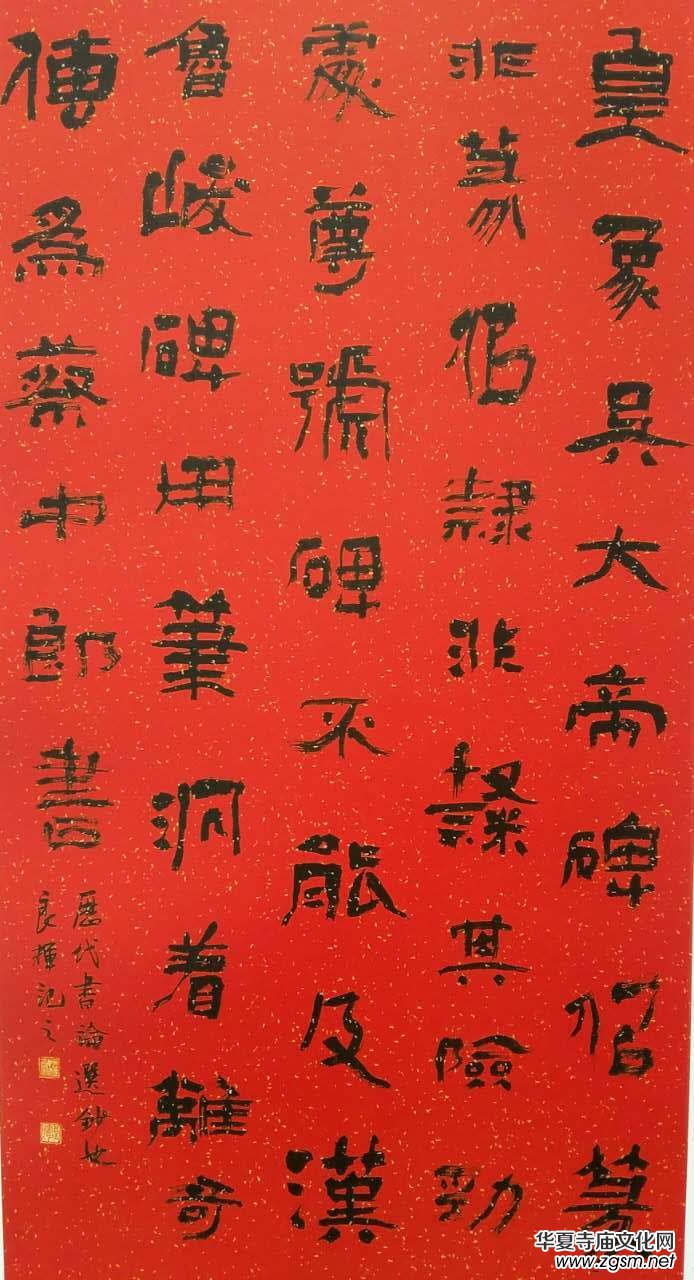 皇象吴大帝碑侣篆
非篆侣隸非隸其險勁
處尊號碑不能及漢
魯峻碑用筆洞着離奇
傳為蔡中郎書
歷代書論選鈔也
良擇記之
华夏寺庙文化网
www.zgsm.net